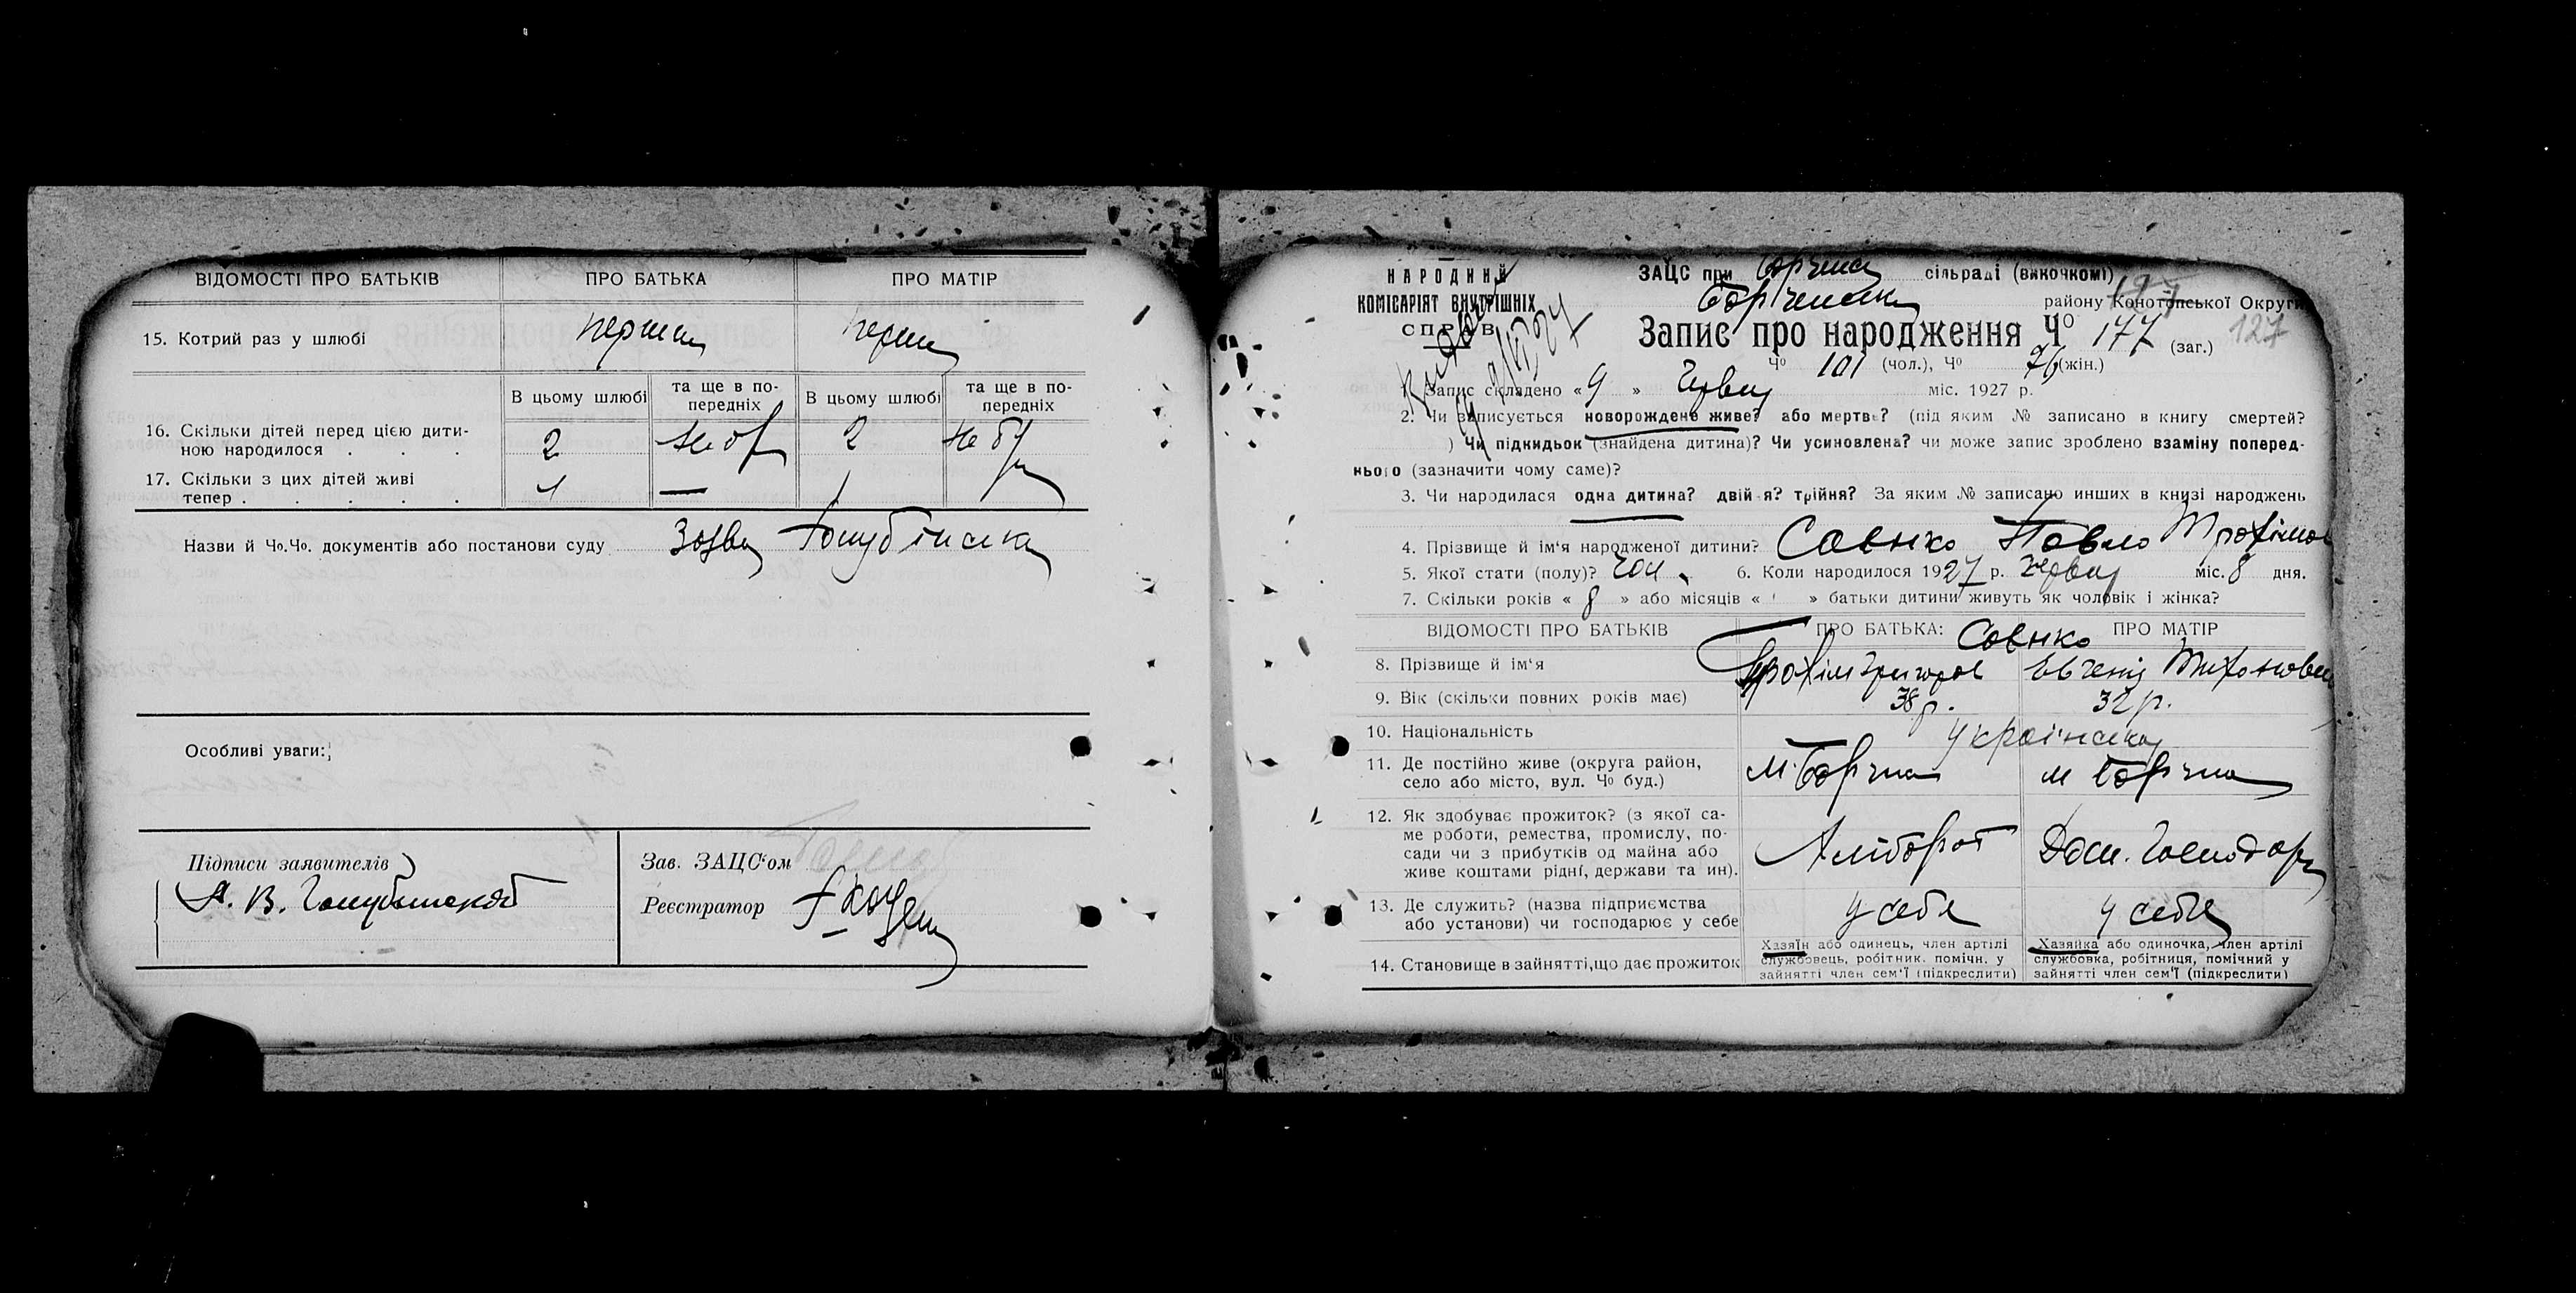 ВІДОМОСТІ ПРО БАТЬКІВ
ПРО БАТЬКА
ПРО МАТІР
15. Котрий раз у шлюбі
перши
перши
В цьому шлюбі
та ще в по-
передніх
В цьому шлюбі
та ще в по-
передніх
16. Скільки дітей перед цією дити-
ною народилося . . .
2
2
не бу
17. Скільки з цих дітей живі
тепер . . . . .
1
—
1
Назви й Чо.Чо. документів або постанови суду
Особливі уваги:
Підписи заявителів
Зав. ЗАЦС'ом
Реєстратор
НАРОДНИЙ
КОМІСАРІЯТ ВНУТРІШНІХ
СПРАВ
ЗАЦС при Борзна сільраді (виючкомі)
району Конотопської Округи
Запис про народження Чо 177 (заг.)
127
Чо 101 (чол.), Чо 76 (жін.)
1. Запис складено « 9 » Червня міс. 1927 р.
2. Чи записується новорождене живе? або мертве? (під яким № записано в книгу смертей?
) Чи підкидьок (знайдена дитина)? Чи усиновлена? чи може запис зроблено взаміну поперед-
нього (зазначити чому саме)?
3. Чи народилася одна дитина? двій я? трійня? За яким № записано инших в книзі народжень
4. Прізвище й ім'я народженої дитини? Савнко Павло Трохимов
5. Якої стати (полу)? чол. 6. Коли народилося 1927 р. Червня міс. 8 дня.
7. Скільки років « 8 » або місяців « » батьки дитини живуть як чоловік і жінка?
ВІДОМОСТІ ПРО БАТЬКІВ
ПРО БАТЬКА:
Савнко
ПРО МАТІР
8. Прізвище й ім'я
Трохім Григоров
Евгенія Тихоновна
9. Вік (скільки повних років має)
38 р.
32 р.
10. Національність
Українська
11. Де постійно живе (округа район,
село або місто, вул. Чо буд.)
м. Борзна
м Борзна
12. Як здобуває прожиток? (з якої са-
ме роботи, ремества, промислу, по-
сади чи з прибутків од майна або
живе коштами рідні, держави та ин).
Хлібороб
Дом. Господарка
13. Де служить? (назва підприємства
або установи) чи господарює у себе
у себе
у себе
14. Становище в зайнятті, що дає прожиток
Хазяїн або одинець, член артілі
службовець, робітник. помічн. у
зайнятті член сем'ї (підкреслити)
Хазяйка або одиночка, член артілі
службовка, робітниця, помічний у
зайнятті член сем'ї (підкреслити)